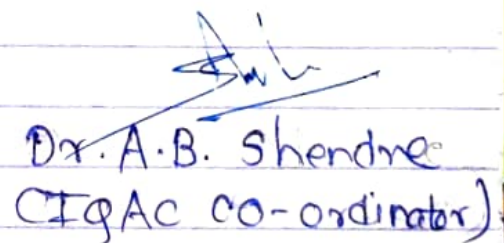 Dr. A.B. Shendre
(IQAC CO-ordinator)